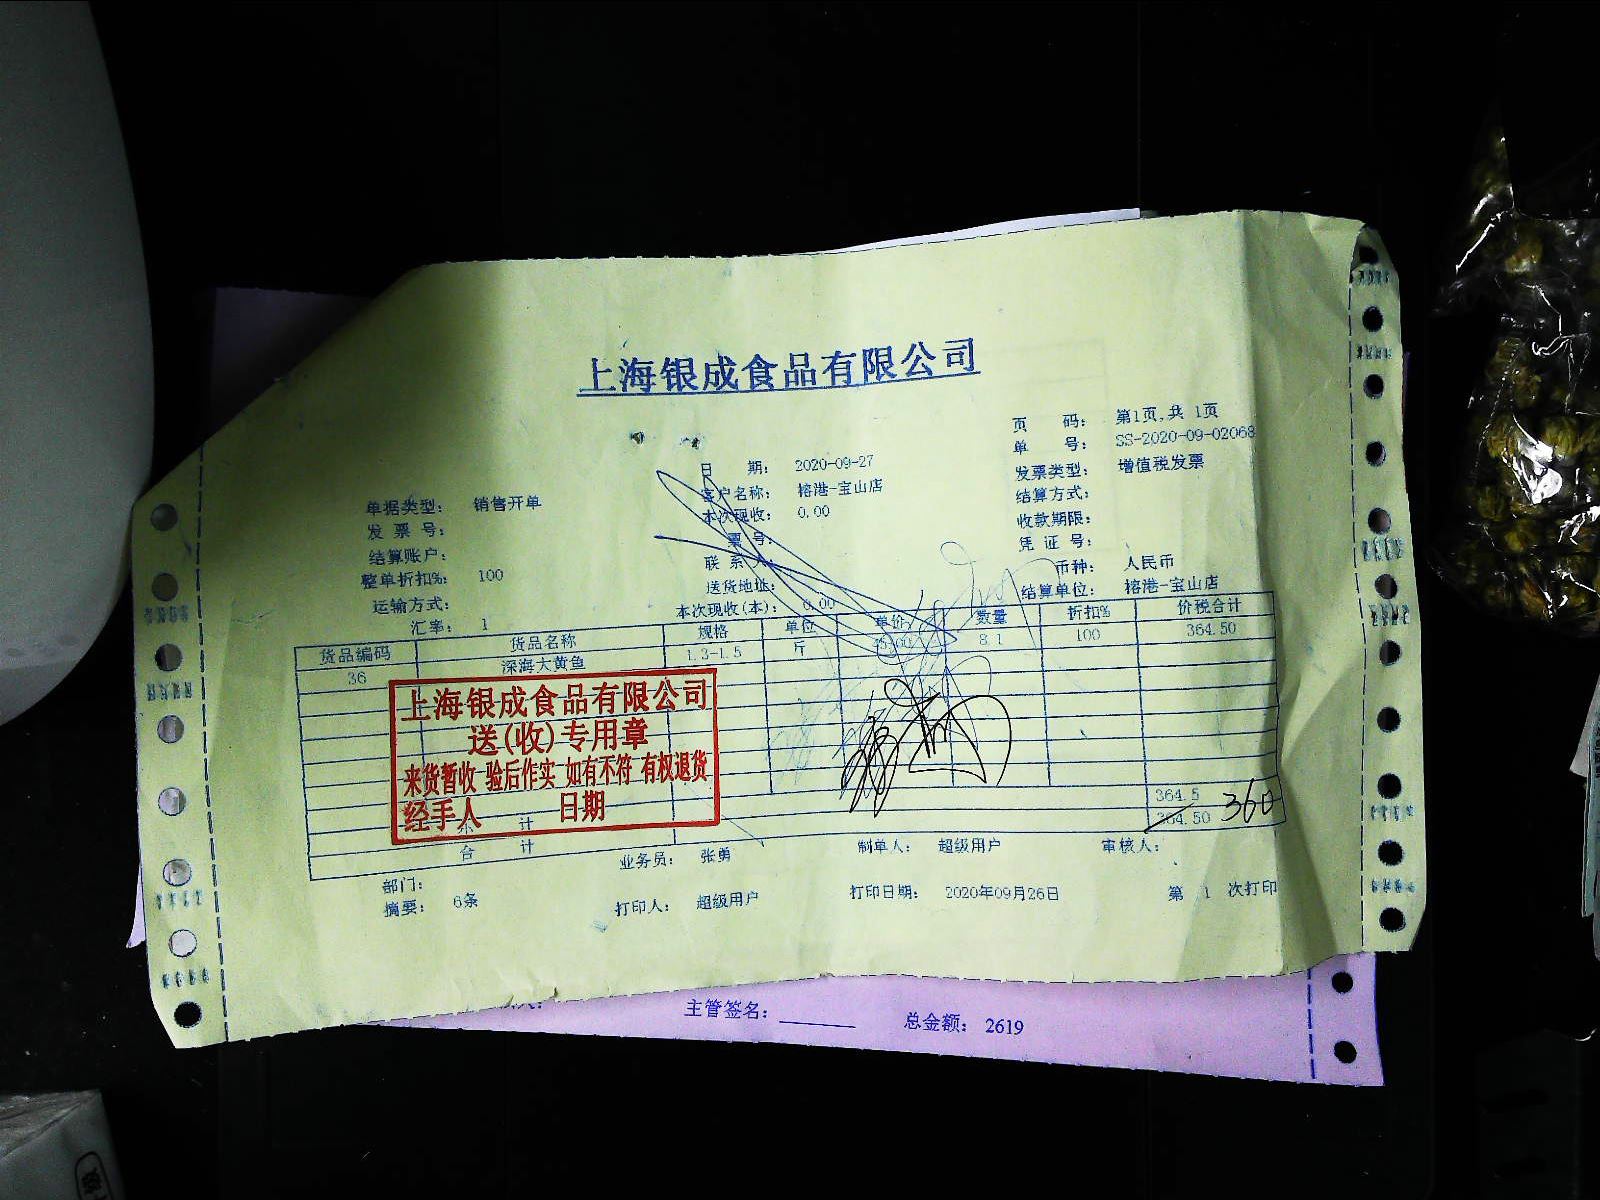 上海银成食品有限公司
页 码： 第1页,共 1页
单 号： SS-2020-09-02068
日 期： 2020-09-27
发票类型： 增值税发票
单据类型： 销售开单
客户名称： 榕港-宝山店
结算方式：
发 票 号：
本次现收： 0.00
收款期限：
结算账户：
票 号：
凭 证 号：
整单折扣%： 100
联 系 人：
币种： 人民币
运输方式：
送货地址：
结算单位： 榕港-宝山店
汇率： 1
本次现收(本)： 0.00
货品编码 货品名称 规格 单位 单价 数量 折扣% 价税合计
36 深海大黄鱼 1.3-1.5 斤 8.1 100 364.50
上海银成食品有限公司
送(收)专用章
来货暂收 验后作实 如有不符 有权退货
经手人 日期
小 计 364.5
合 计 364.50 360
业务员： 张勇 制单人： 超级用户 审核人：
部门：
摘要： 6条 打印人： 超级用户 打印日期： 2020年09月26日 第 1 次打印
主管签名： 总金额： 2619